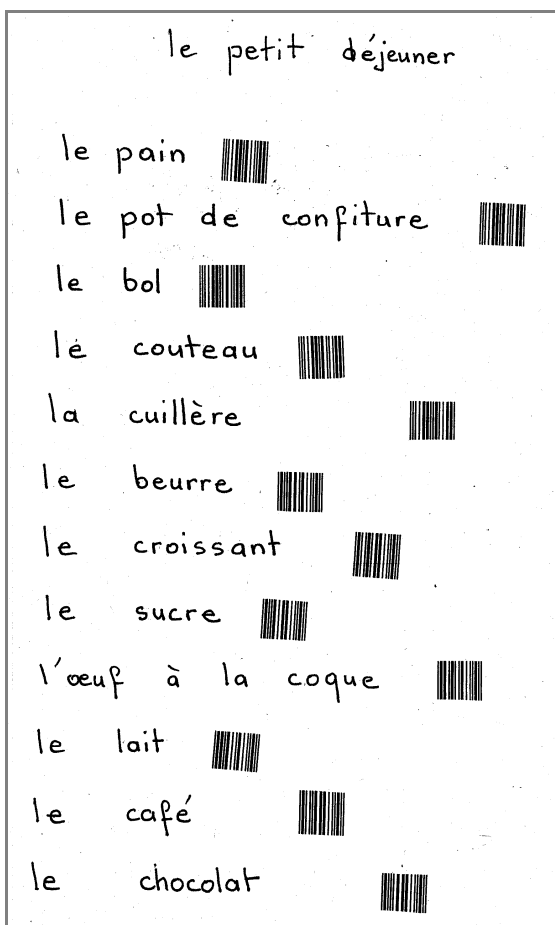 le petit déjeuner
le pain
le pot de confiture
le bol
le couteau
la cuillère
le beurre
le croissant
le sucre
l'œuf à la coque
le lait
le café
le chocolat